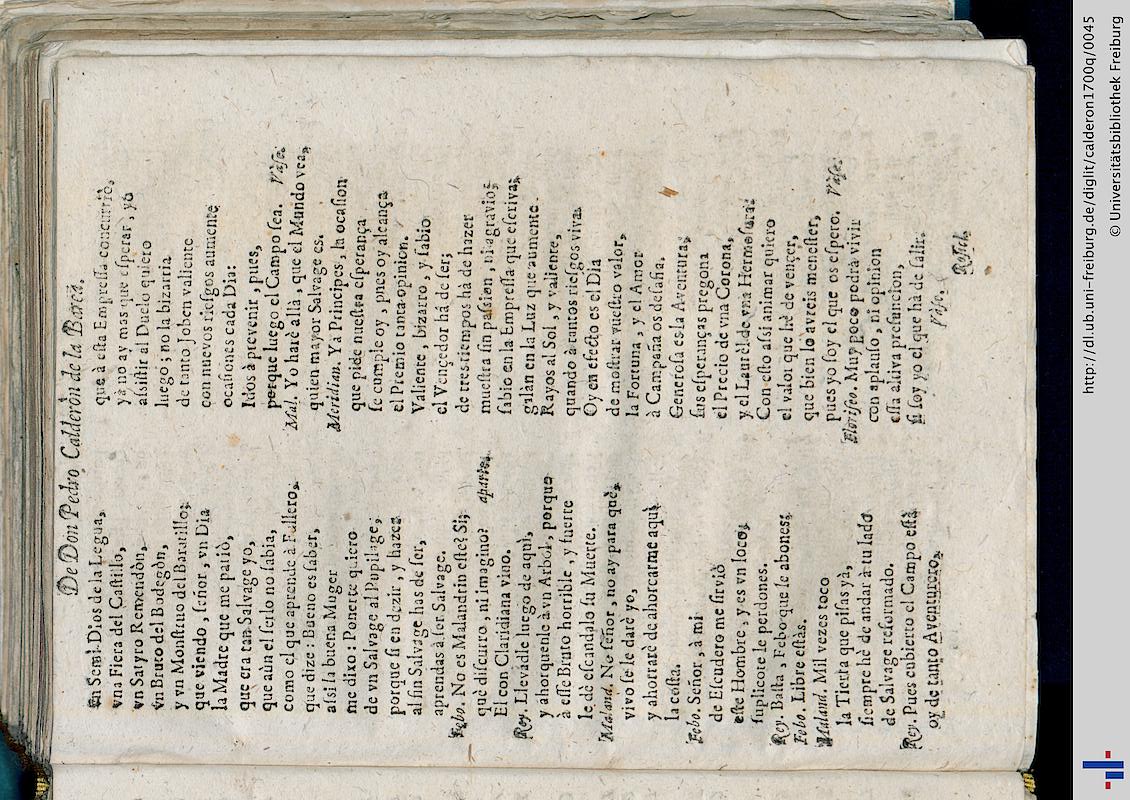 De Don Pedro Calderòn de la Barca.
vn Semi-Dios de la Legua,
vna Fiera del Castillo,
vn Satyro Remendòn,
vn Bruto del Bodegòn,
y vn Monstruo del Baratillo;
que viendo, señor, vn Dia
la Madre que me pariò,
que era tan Salvage yo,
que aùn el serlo no sabia,
como el que aprende à Fullero,
que dize: Bueno es saber,
assi la buena Muger
me dixo: Ponerte quiero
de vn Salvage al Pupilage,
porque si en dezir, y hazer
al fin Salvage has de ser,
aprendas à ser Salvage.
Febo. No es Malandrin este? Si;
què discurro, ni imagino? aparte.
El con Claridiana vino.
Rey. Llevadle luego de aquì,
y ahorquenle à vn Arbol, porque
à esse Bruto horrible, y fuerte
le dè escandalo su Muerte.
Maland. No señor, no ay para què,
vivo se le darè yo,
y ahorrarè de ahorcarme aquì
la costa.
Febo. Señor, à mi
de Escudero me sirviò
este Hombre, y es vn loco;
suplicote le perdones.
Rey. Basta, Febo que le abones;
Febo. Libre estàs.
Maland. Mil vezes toco
la Tierra que pisas yà,
siempre hè de andar à tu lado
de Salvage reformado.
Rey. Pues cubierto el Campo està
oy de tanto Aventurero,
que à esta Empressa concurriò,
yà no ay mas que esperar, yò
assistir al Duelo quiero
luego; no la bizarria
de tanto Joben valiente
con nuevos riesgos aumente
ocasiones cada Dia:
Idos à prevenir, pues,
porque luego el Campo sea. Vase.
Mal. Yo harè allà, que el Mundo vea,
quien mayor Salvage es.
Meridian. Yà Principes, la ocasion
que pide nuestra esperança
se cumple oy, pues oy alcança
el Premio tanta opinion.
Valiente, bizarro, y sabio
el Vencedor hà de ser;
de tres tiempos hà de hazer
muestra sin passion, ni agravio;
sabio en la Empressa que escriva;
galàn en la Luz que aumente
Rayos al Sol, y valiente,
quando à tantos riesgos viva.
Oy en efecto es el Dia
de mostrar vuestro valor,
la Fortuna, y el Amor
à Campaña os desafia.
Generosa es la Aventura;
sus esperanças pregona
el Precio de vna Corona,
y el Laurèl de vna Hermosura:
Con esto assi animar quiero
el valor que hè de vencer,
que bien lo avreis menester,
pues yo soy el que os espero. Vase.
Floriseo. Muy poco podrà vivir
con aplauso, ni opinion
essa altiva presuncion,
si soy yo el que hà de salir.
Vase.
Rosicl.
http://dl.ub.uni-freiburg.de/diglit/calderon1700q/0045
© Universitätsbibliothek Freiburg